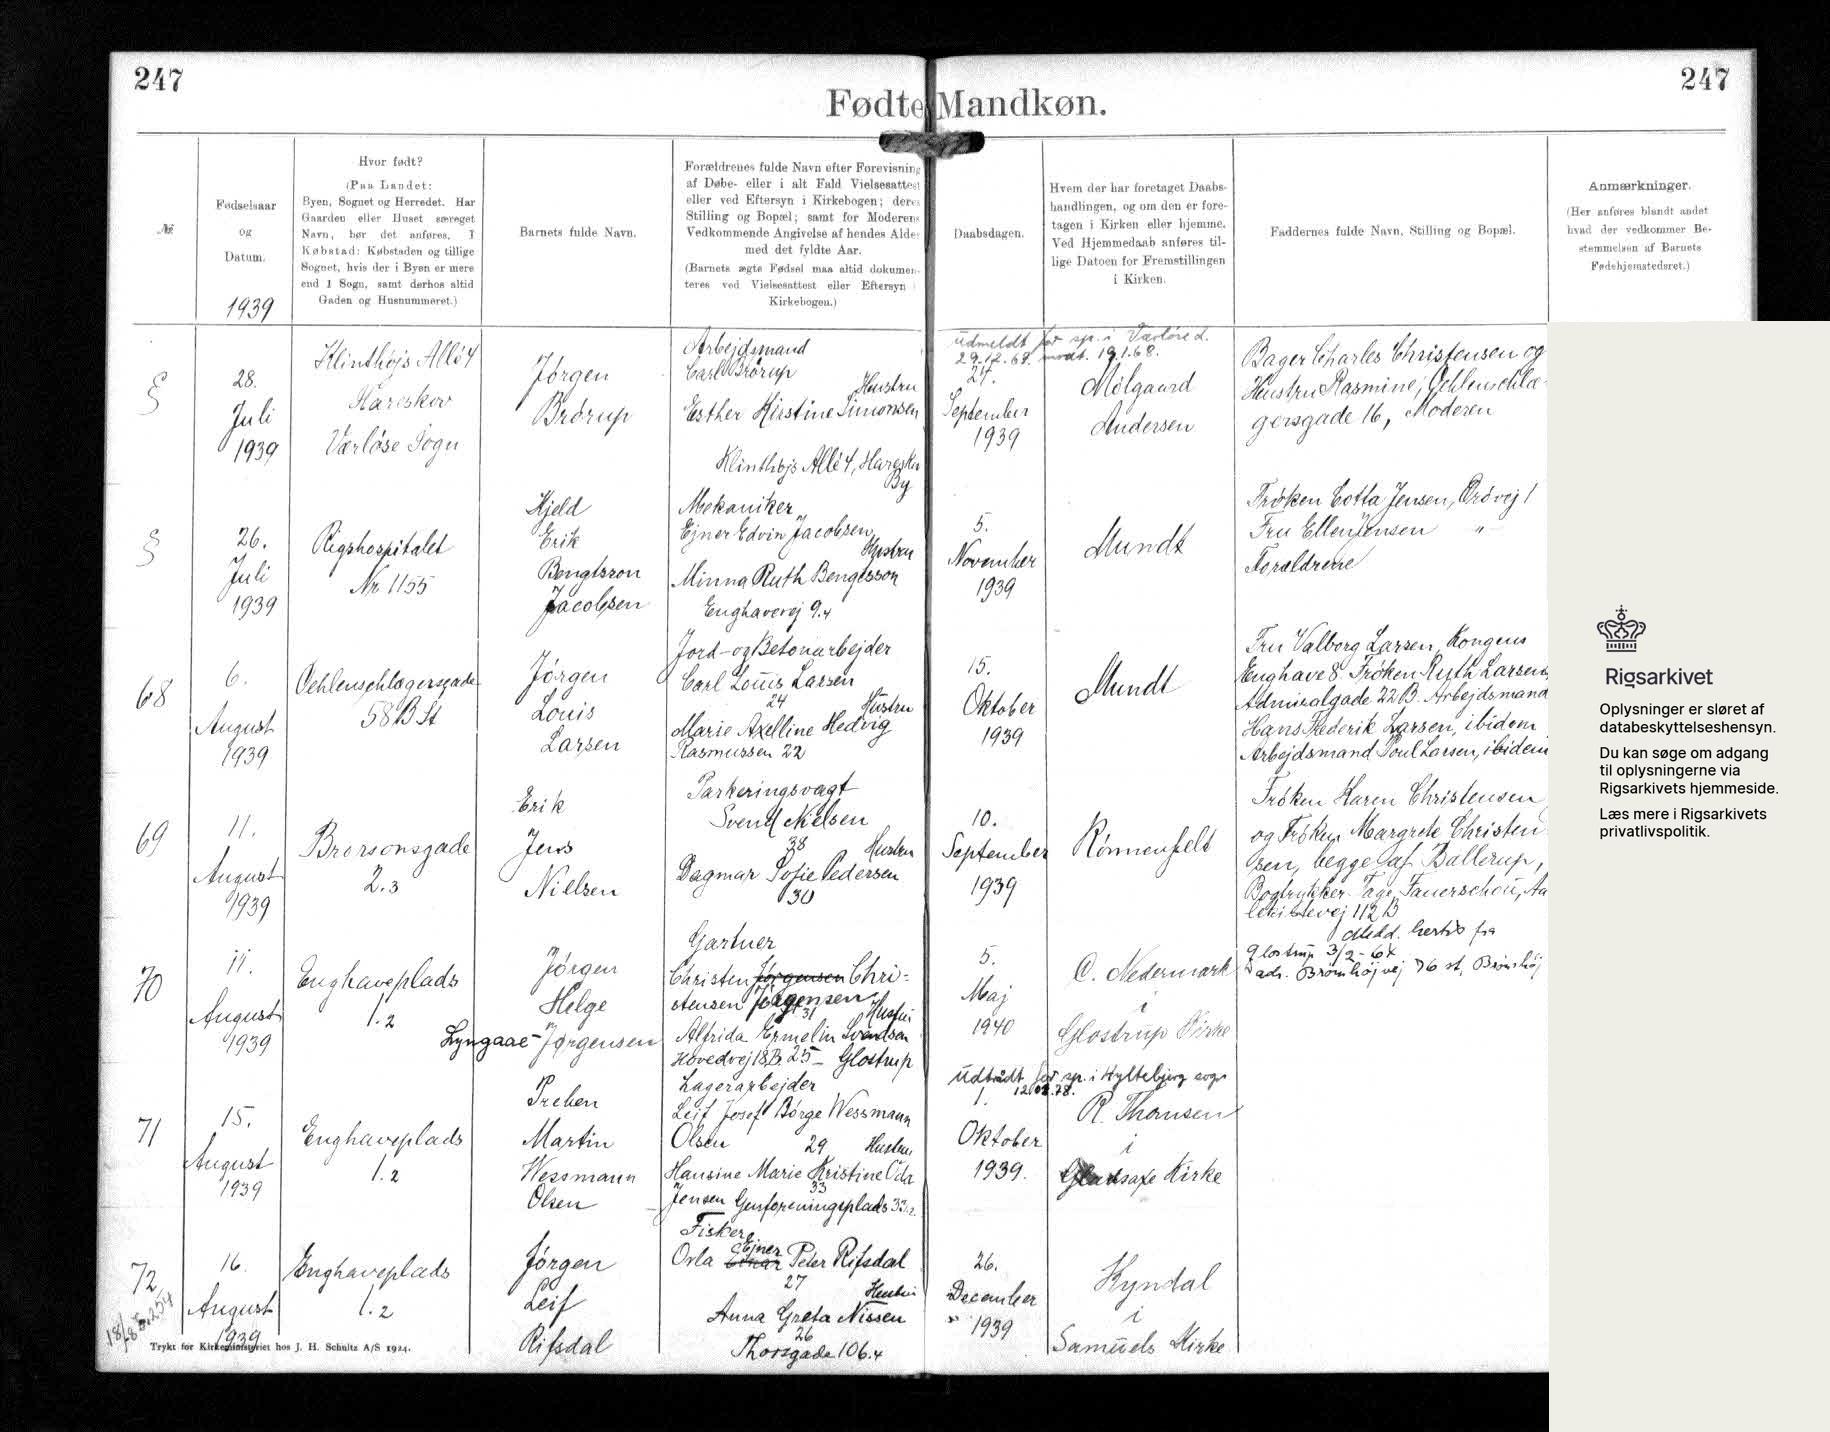 247
247
Fødte Mandkøn.
№
Fødselsaar
og
Datum.
1939
Hvor født?
(Paa Landet:
Byen, Sognet og Herredet. Har
Gaarden eller Huset særeget
Navn, bør det anføres. I
Købstad: Købstaden og tillige
Sognet, hvis der i Byen er mere
end 1 Sogn, samt derhos altid
Gaden og Husnummeret.)
Barnets fulde Navn.
Forældrenes fulde Navn efter Forevisning
af Døbe- eller i alt Fald Vielsesattest
eller ved Eftersyn i Kirkebogen; deres
Stilling og Bopæl; samt for Moderens
Vedkommende Angivelse af hendes Alder
med det fyldte Aar.
(Barnets ægte Fødsel maa altid dokumen-
teres ved Vielsesattest eller Eftersyn i
Kirkebogen.)
Daabsdagen.
Hvem der har foretaget Daabs-
handlingen, og om den er fore-
tagen i Kirken eller hjemme.
Ved Hjemmedaab anføres til-
lige Datoen for Fremstillingen
i Kirken.
Faddernes fulde Navn, Stilling og Bopæl.
Anmærkninger.
(Her anføres blandt andet
hvad der vedkommer Be-
stemmelsen af Barnets
Fødehjemstedsret.)
§
28.
Juli
1939
Klinthøjs Allé 4
Hareskov
Værløse Sogn
Jørgen
Brørup
Arbejdsmand
Carl Brørup
Hustru
Esther Kirstine Simonsen
Klinthøjs Allé 4, Hareskov
By
udmeldt før sp. i Værløse d.
29.12.67. modt. 19.1.68.
24.
September
1939
Mølgaard
Andersen
Bager Charles Christensen og
Hustru Rasmine, Oehlenschlæ-
gersgade 16, Moderen
§
26.
Juli
1939
Rigshospitalet
Nr. 1155
Kjeld
Erik
Bengtsson
Jacobsen
Mekaniker
Ejner Edvin Jacobsen,
Hustru
Minna Ruth Bengtsson
Enghavevej 9.4
5.
November
1939
Mundt
Frøken Lotta Jensen, Orøvej 1
Fru Ellen Jensen "-
Forældrene
68
6.
August
1939
Oehlenschlægersgade
58 B St
Jørgen
Louis
Larsen
Jord- og Betonarbejder
Carl Louis Larsen
24 Hustru
Marie Axelline Hedvig
Rasmussen 22
15.
Oktober
1939
Mundt
Fru Valborg Larsen, Kongens
Enghave 8. Frøken Ruth Larsen,
Admiralgade 22 B. Arbejdsmand
Hans Frederik Larsen, ibidem
Arbejdsmand Poul Larsen, ibidem
69
11.
August
1939
Brorsonsgade
2.3
Erik
Jens
Nielsen
Parkeringsvagt
Svend Nielsen
38 Hustru
Dagmar Sofie Pedersen
30
10.
September
1939
Rønnenfelt
Frøken Karen Christensen
og Frøken Margrete Christen
sen, begge af Ballerup,
Bogtrykker Tage Fauerschou,
112 B
70
11.
August
1939
Enghaveplads
1.2
Jørgen
Helge
Lyngaae-Jørgensen
Gartner
Christen Jørgensen Chri-
stensen Jørgensen
31 Hustru
Alfrida Ermelin Svendsen
Hovedvej 18 B. 25 - Glostrup
5.
Maj
1940
C. Nedermark
i
Glostrup Kirke
Medd. hertil fra
Glostrup 3/2-64
adr. Brønshøjvej 76 st, Brønshøj
71
15.
August
1939
Enghaveplads
1.2
Preben
Martin
Wessmann
Olsen
Lagerarbejder
Leif Josef Børge Wessmann
Olsen 29 Hustru
Hansine Marie Kristine Oda
33
Jensen Genforeningsplads 33.2.
Udtrådt før sp. i Hyltebjerg sogn
1. 12.02.78.
Oktober
1939.
R. Thomsen
i
Gladsaxe Kirke
72
16.
August
1939
Enghaveplads
1.2
Jørgen
Leif
Rifsdal
Fisker
Ejner
Orla Einar Peter Rifsdal
27
Hustru
Anna Greta Nissen
26
Thorsgade 106.4
26.
December
1939
Kyndal
i
Samuels Kirke
Trykt for Kirkeministeriet hos J. H. Schultz A/S 1924.
Rigsarkivet
Oplysninger er sløret af
databeskyttelseshensyn.
Du kan søge om adgang
til oplysningerne via
Rigsarkivets hjemmeside.
Læs mere i Rigsarkivets
privatlivspolitik.